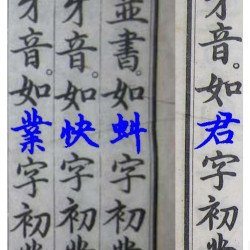 牙音。如君字初
並書。如虯字初
牙音。如快字初
牙音。如業字初